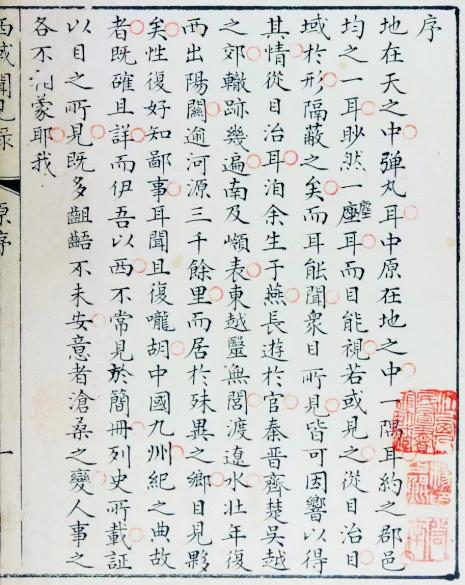 序
地在天之中彈丸耳中原在地之中一隅耳約之郡邑
均之一耳眇然一座塵耳而目能視若或見之從目治目
域於形隔蔽之矣而耳能聞衆目所見皆可因響以得
其情從目治耳洎余生于燕長遊於官秦晉齊楚吳越
之郊轍跡幾遍南及嶺表東越毉無閭渡遼水壯年復
西出陽關逾河源三千餘里而居於殊異之鄉目見夥
矣性復好知鄙事耳聞且復嚨胡中國九州紀之曲故
者既確且詳而伊吾以西不常見於簡冊列史所載証
以目之所見既多齟齬不未安意者滄桑之變人事之
各不蒙耶我
西域聞見錄
原序
一